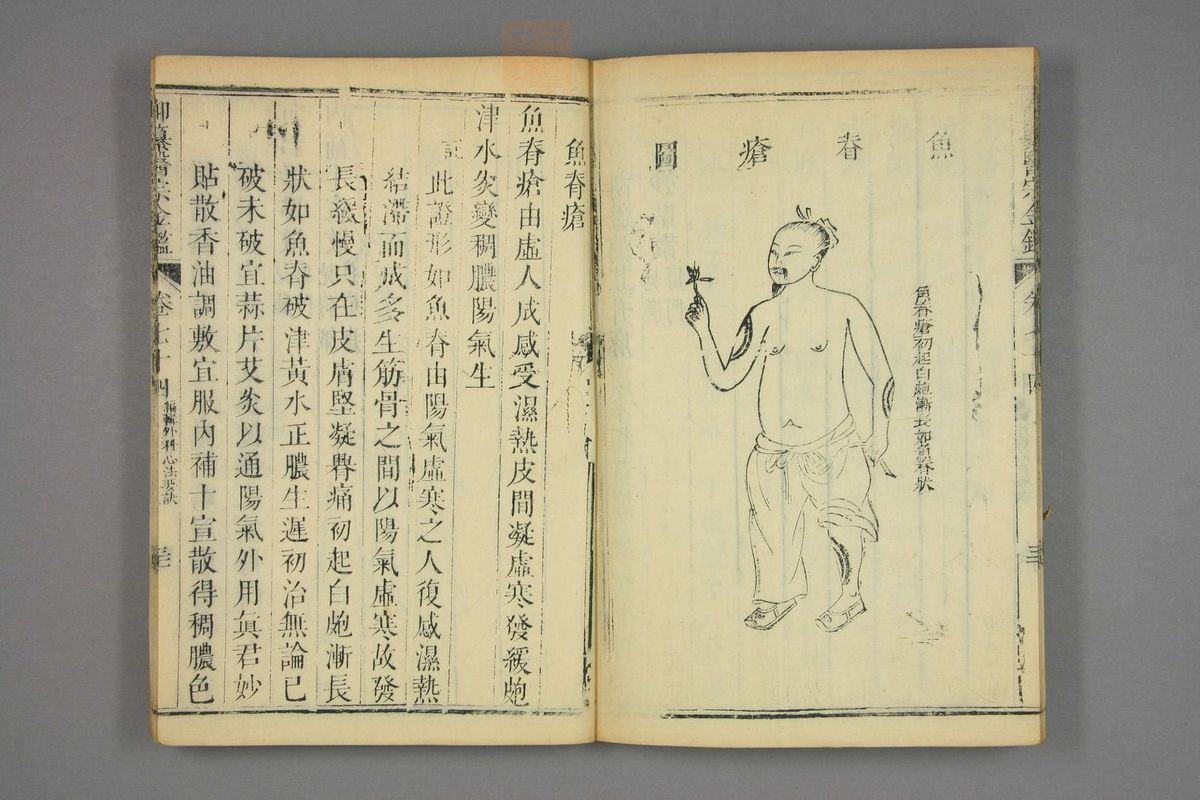 魚脊瘡圖
魚脊瘡初起白皰漸長如魚脊狀
魚脊瘡
魚脊瘡由虛人成感受濕熱皮間凝虛寒發緩皰
津水灸變稠膿陽氣生
註此證形如魚脊由陽氣虛寒之人復感濕熱
結滯而成多生筋骨之間以陽氣虛寒故發
長緩慢只在皮膚堅凝㿋痛初起白皰漸長
狀如魚脊破津黃水正膿生遲初治無論已
破未破宜蒜片艾灸以通陽氣外用真君妙
貼散香油調敷宜服內補十宣散得稠膿色
御纂醫宗金鑑 卷七十四 編輯外科心法要訣